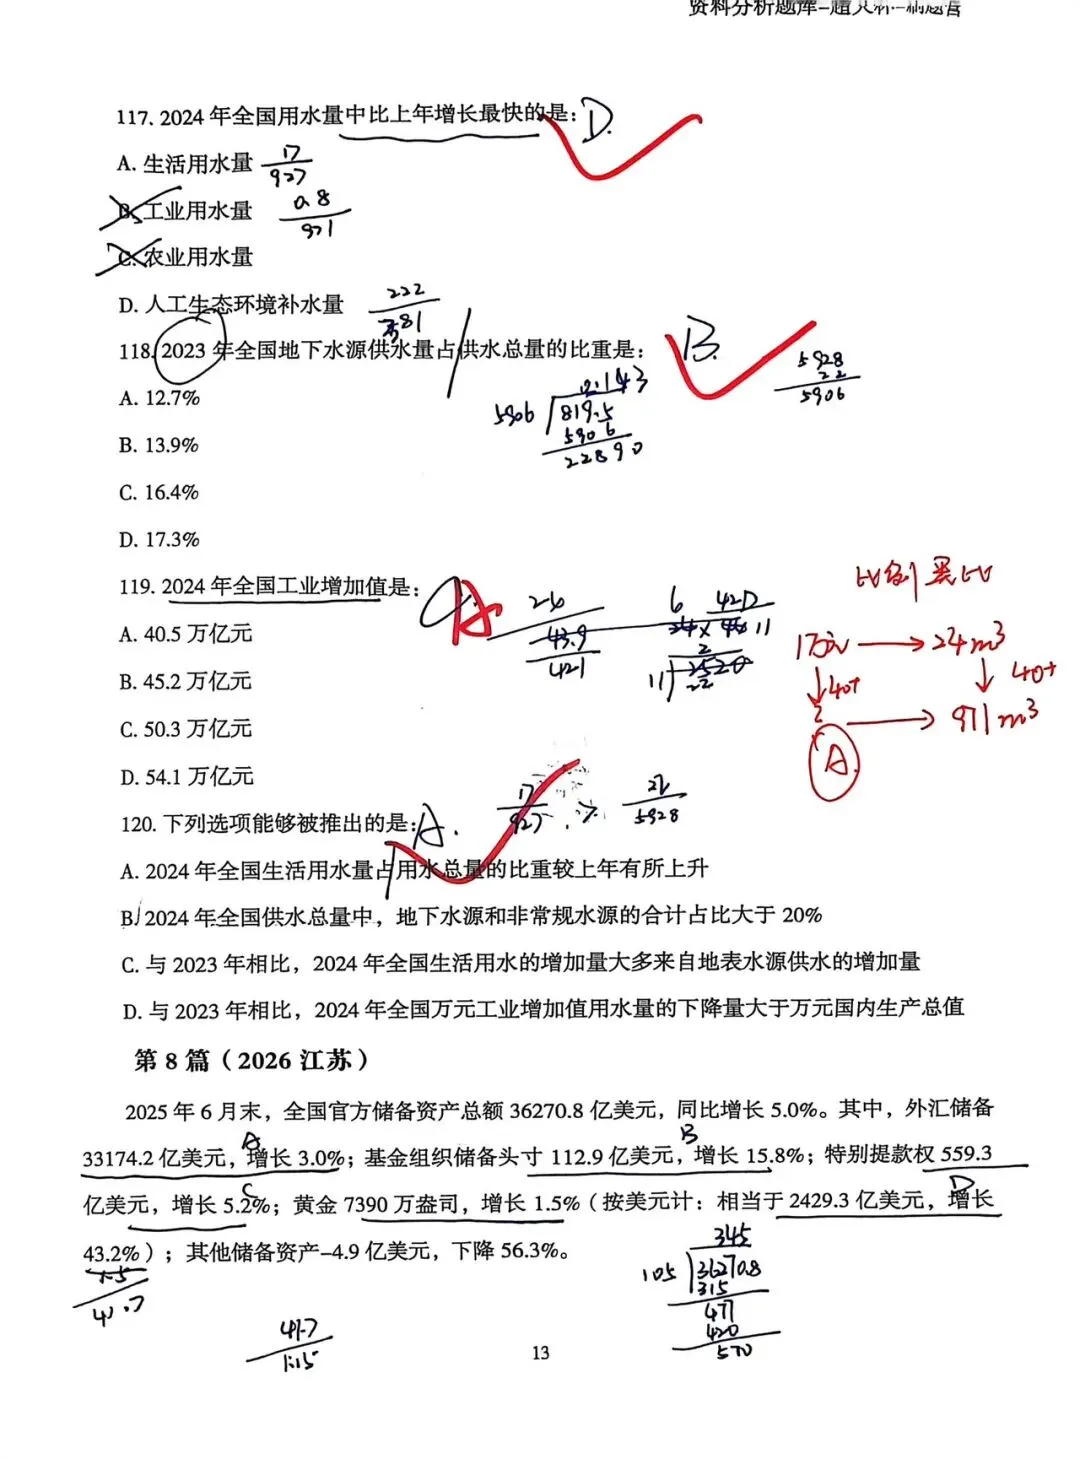 资料分析题库-超大杯-刷题营
117. 2024 年全国用水量中比上年增长最快的是： D.
A. 生活用水量 17/927
B. 工业用水量 0.8/971
C. 农业用水量
D. 人工生态环境补水量 222/581
118. 2023 年全国地下水源供水量占供水总量的比重是： B.
A. 12.7%
5928
22
5906
0.143
5906 819.5
5906
22890
B. 13.9%
C. 16.4%
D. 17.3%
119. 2024 年全国工业增加值是： A
比例类比
26
43.9
421
6 420
24× 46 11
2
11 2520
22
A. 40.5 万亿元
1万元 → 24m³
B. 45.2 万亿元
↓40+ ↓ 40+
C. 50.3 万亿元
? → 971m³
A.
D. 54.1 万亿元
120. 下列选项能够被推出的是： A. 17/927 > 22/5928
A. 2024 年全国生活用水量占用水总量的比重较上年有所上升
B. 2024 年全国供水总量中，地下水源和非常规水源的合计占比大于 20%
C. 与 2023 年相比，2024 年全国生活用水的增加量大多来自地表水源供水的增加量
D. 与 2023 年相比，2024 年全国万元工业增加值用水量的下降量大于万元国内生产总值
第 8 篇（2026 江苏）
2025 年 6 月末，全国官方储备资产总额 36270.8 亿美元，同比增长 5.0%。其中，外汇储备
A B
33174.2 亿美元，增长 3.0%；基金组织储备头寸 112.9 亿美元，增长 15.8%；特别提款权 559.3
C D
亿美元，增长 5.2%；黄金 7390 万盎司，增长 1.5%（按美元计：相当于 2429.3 亿美元，增长
43.2%）；其他储备资产-4.9 亿美元，下降 56.3%。
1.5
41.7
345
105 36270.8
315
477
420
570
41.7
1.15
13